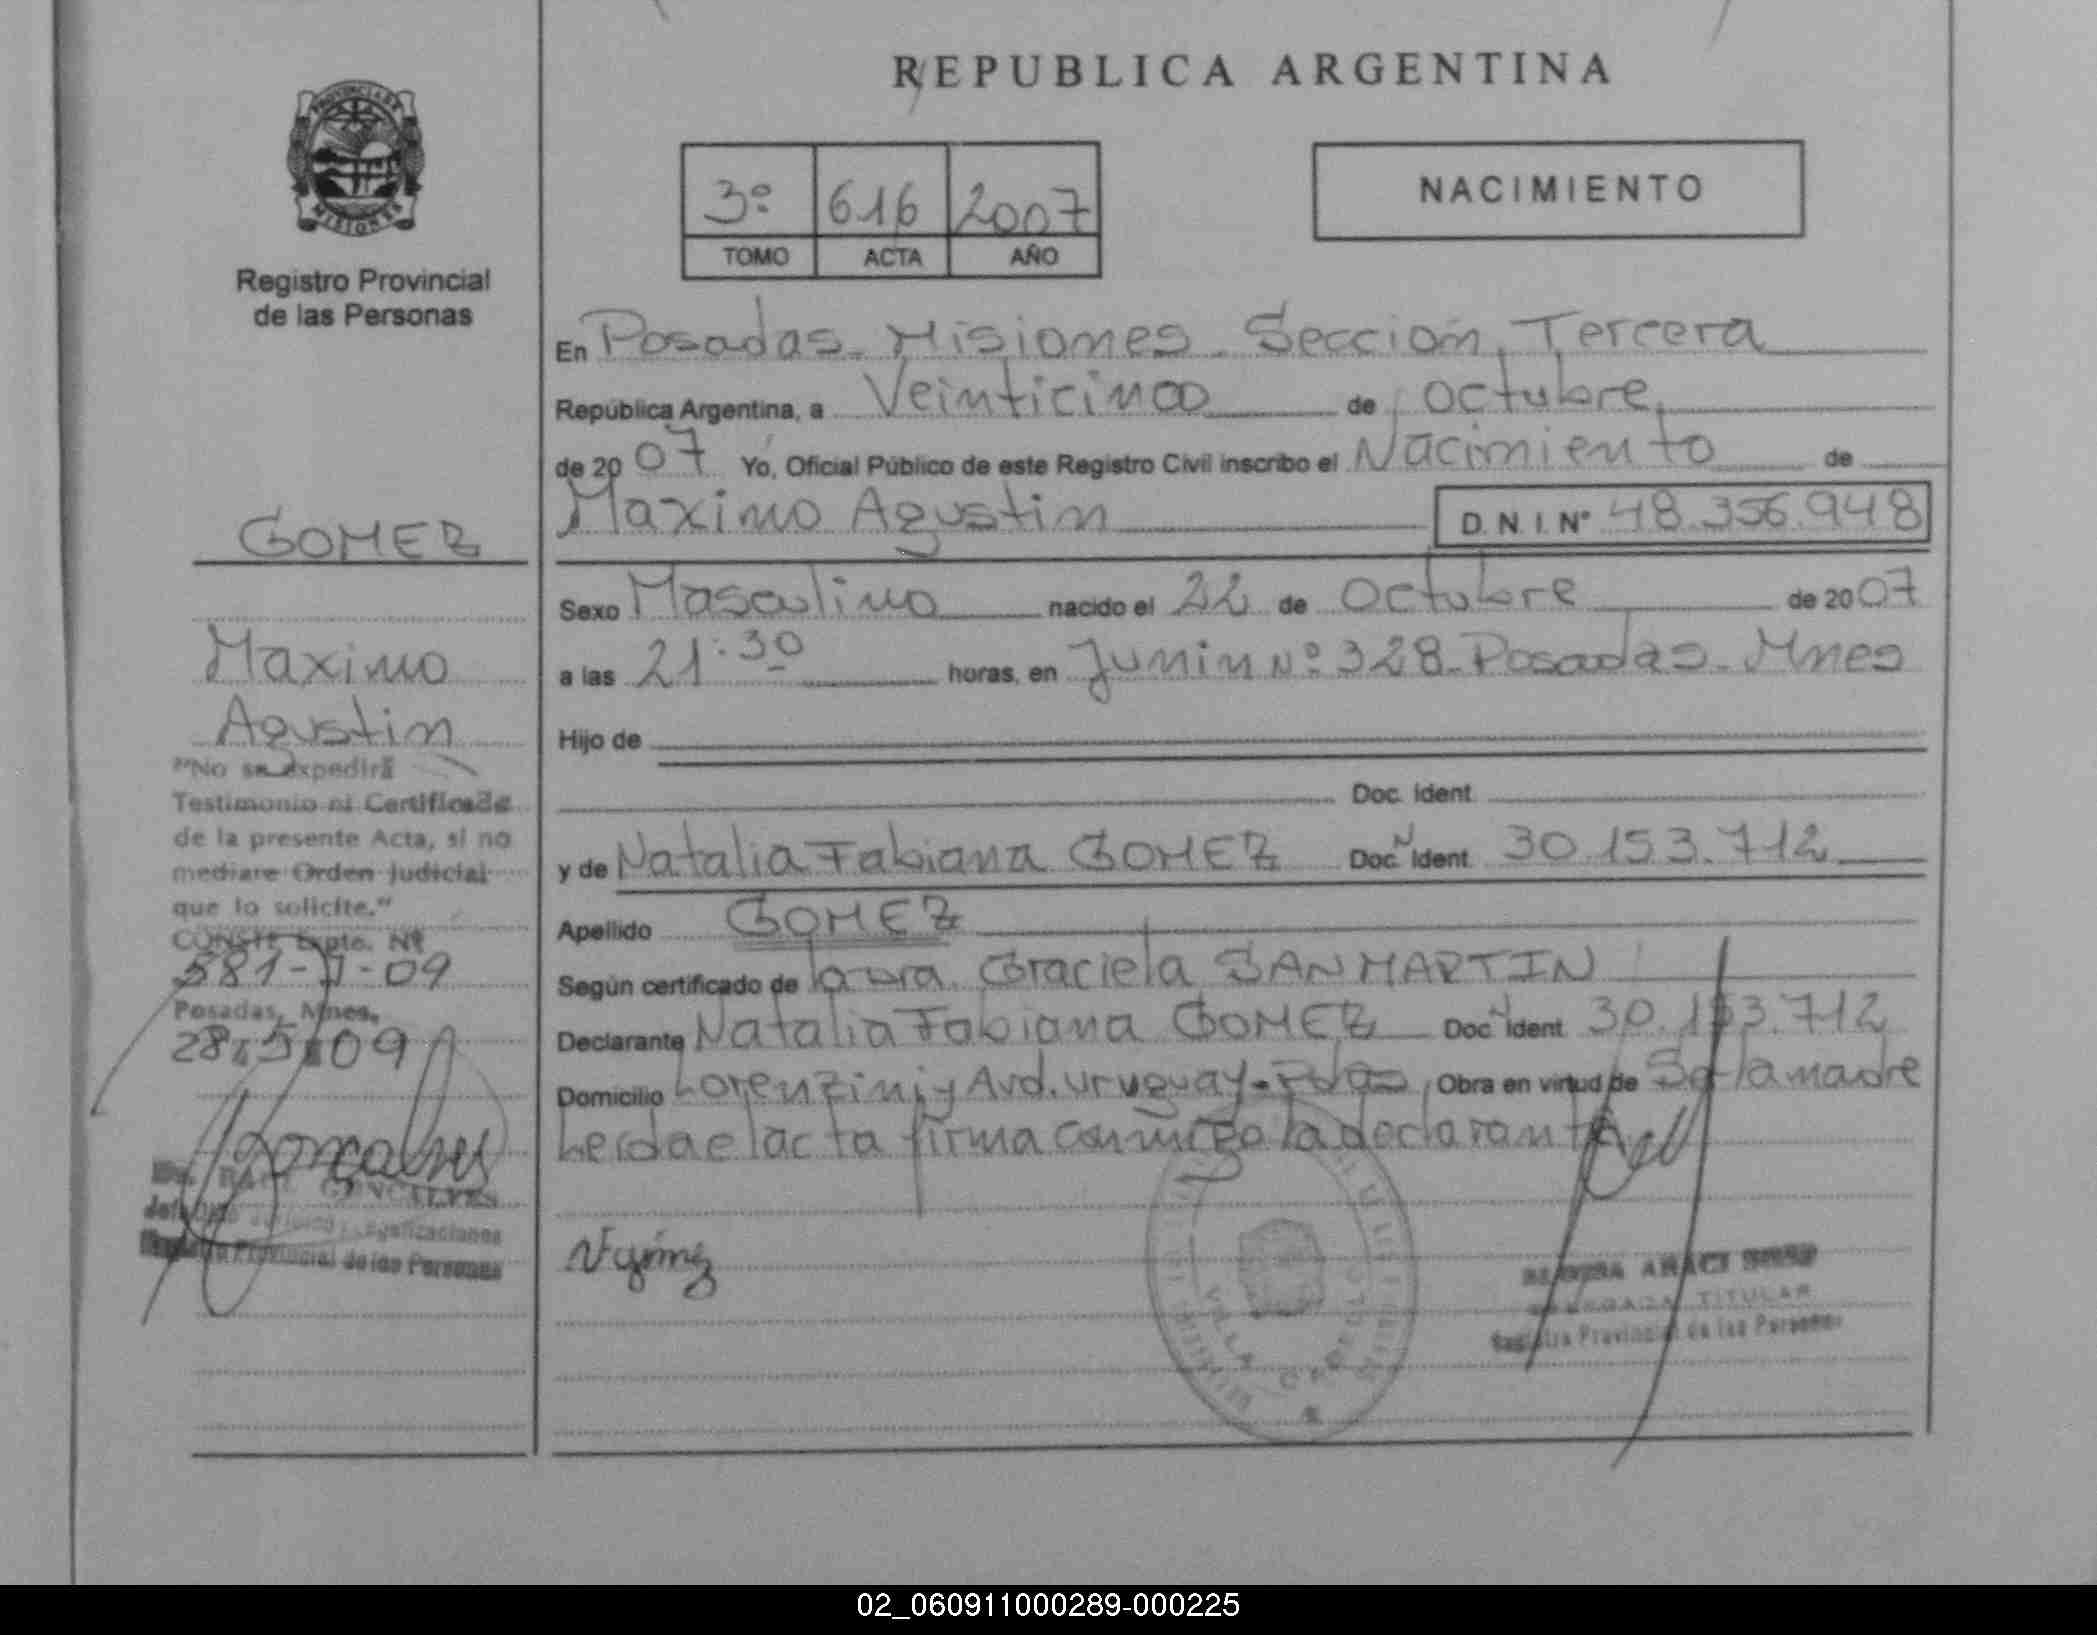 REPUBLICA ARGENTINA
PROVINCIA DE
MISIONES
Registro Provincial
de las Personas
3º 616 2007
TOMO ACTA AÑO
NACIMIENTO
En Posadas Misiones Sección Tercera
República Argentina, a Veinticinco de octubre
de 2007 Yo, Oficial Público de este Registro Civil inscribo el Nacimiento de
Maximo Agustin D.N.I.Nº 48.356.948
Sexo Masculino nacido el 22 de Octubre de 2007
a las 21:30 horas, en Junin Nº 328 Posadas Mnes
Hijo de
Doc. Ident.
y de Natalia Fabiana GOMEZ Doc. Ident. 30.153.712
Apellido GOMEZ
Según certificado de Laura Graciela SANMARTIN
Declarante Natalia Fabiana GOMEZ Doc. Ident. 30.153.712
Domicilio Lorenzini y Avd. Uruguay - Pdas Obra en virtud de Ser la madre
Leida el acta firma conmigo la declarante
GOMEZ
Maximo
Agustin
"No se expedirá
Testimonio ni Certificado
de la presente Acta, si no
mediare Orden Judicial
que lo solicite."
CONSTE Expte. Nº
581-J-09
Posadas, Mnes.
28.5.09
GONCALVES
Registro Provincial de las Personas
VILLA
TITULAR
Registro Provincial de las Personas
02_060911000289-000225